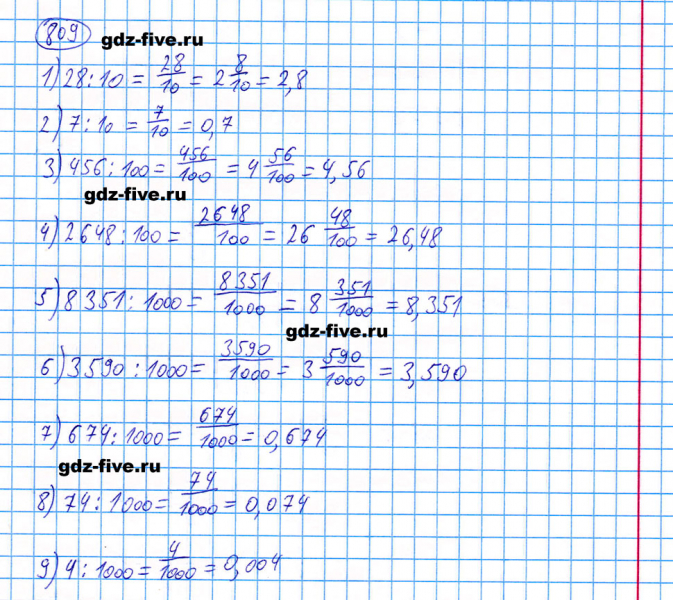 809 gdz-five.ru
1) 28 : 10 = 28/10 = 2 8/10 = 2,8
2) 7 : 10 = 7/10 = 0,7
3) 456 : 100 = 456/100 = 4 56/100 = 4,56
gdz-five.ru
4) 2648 : 100 = 2648/100 = 26 48/100 = 26,48
5) 8351 : 1000 = 8351/1000 = 8 351/1000 = 8,351
gdz-five.ru
6) 3590 : 1000 = 3590/1000 = 3 590/1000 = 3,590
7) 674 : 1000 = 674/1000 = 0,674
gdz-five.ru
8) 74 : 1000 = 74/1000 = 0,074
9) 4 : 1000 = 4/1000 = 0,004